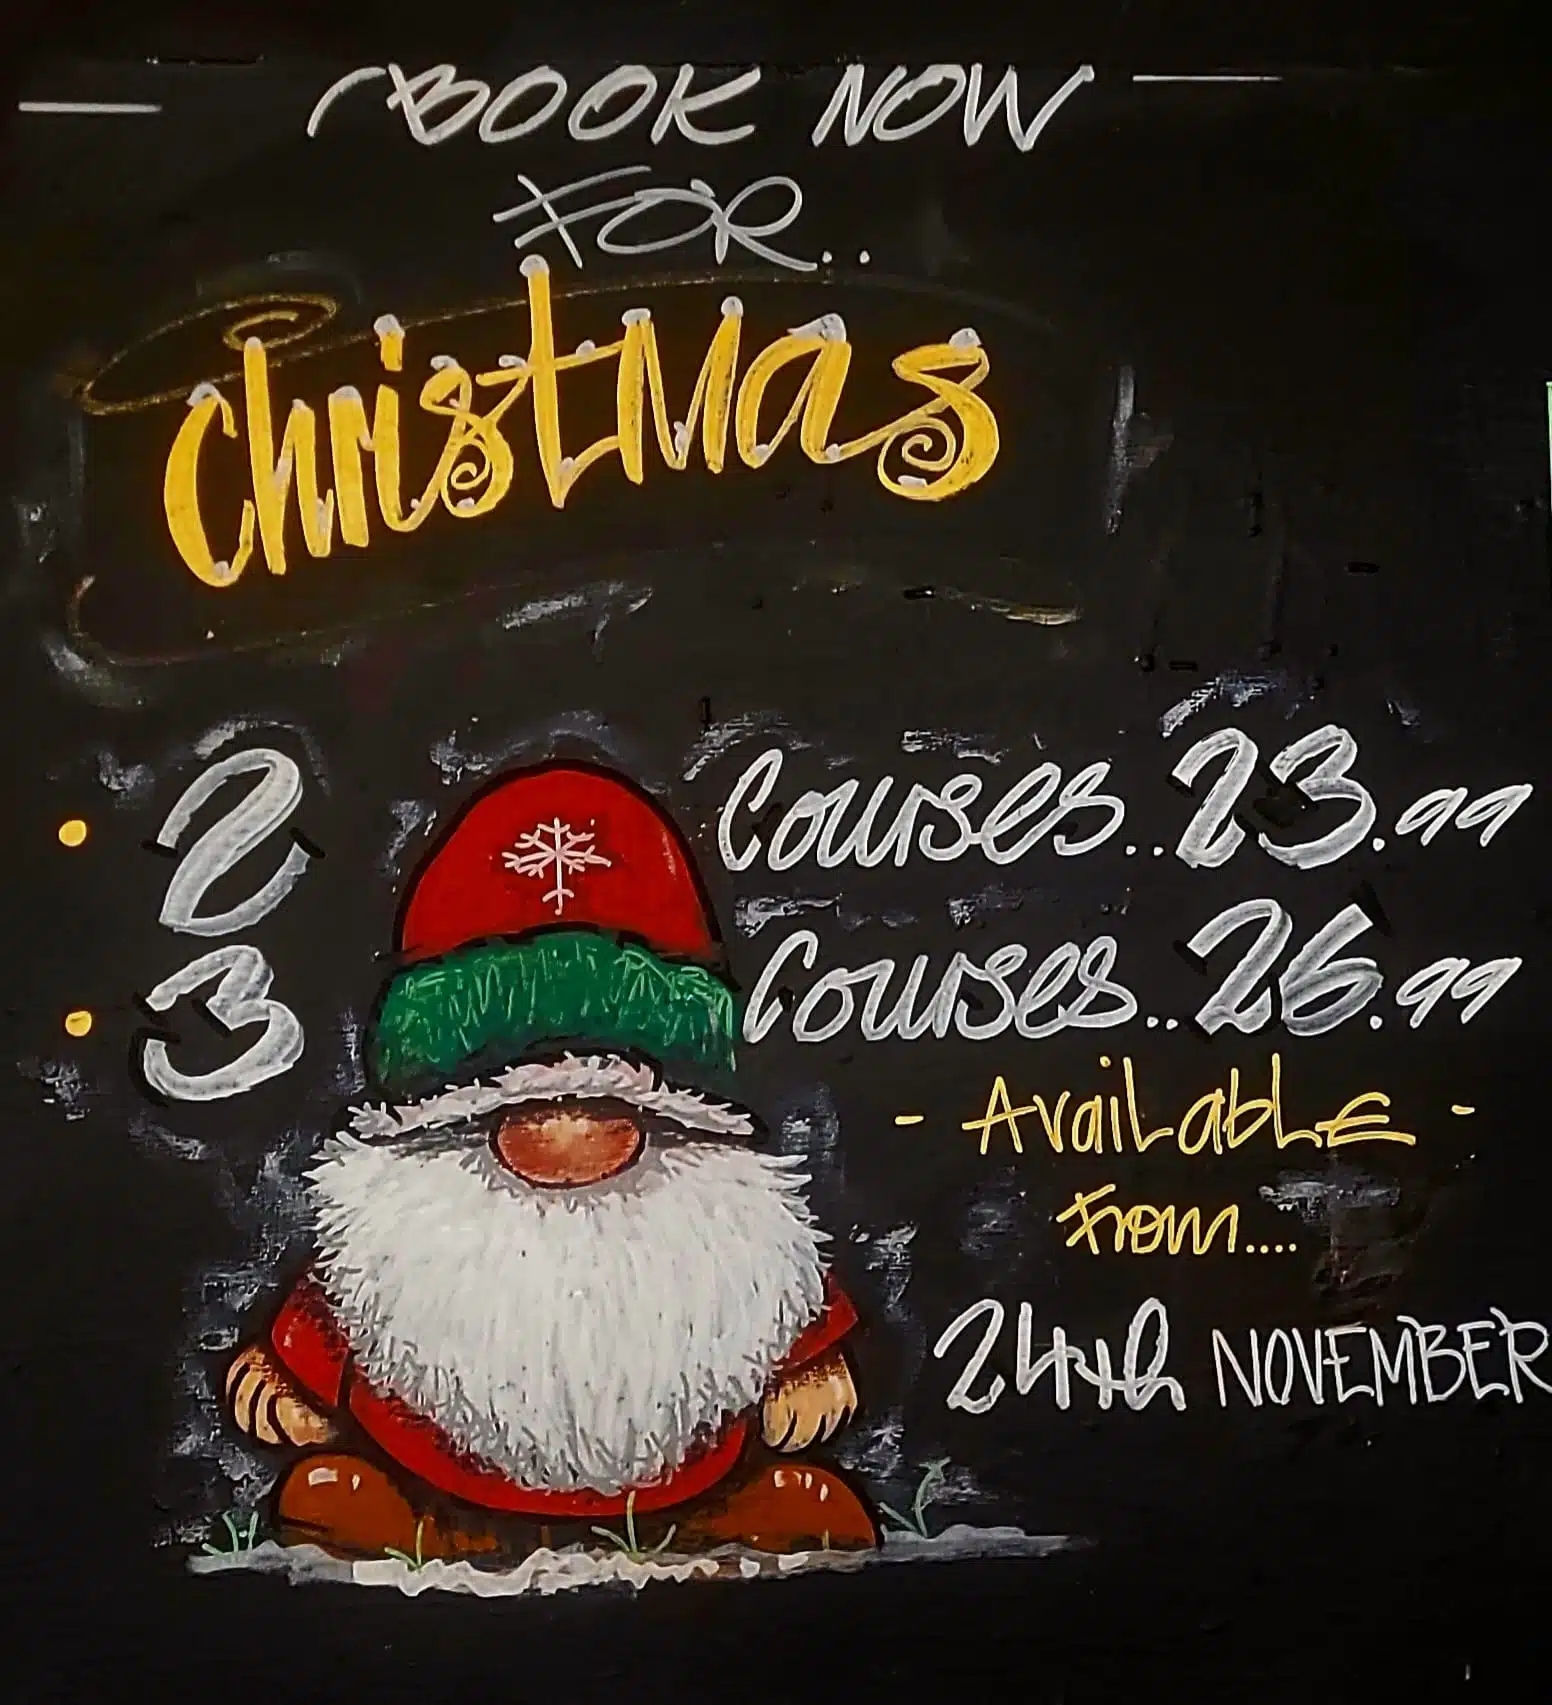 BOOK NOW
FOR..
Christmas
• 2 Courses..23.99
• 3 Courses..26.99
- Available -
From....
24th NOVEMBER